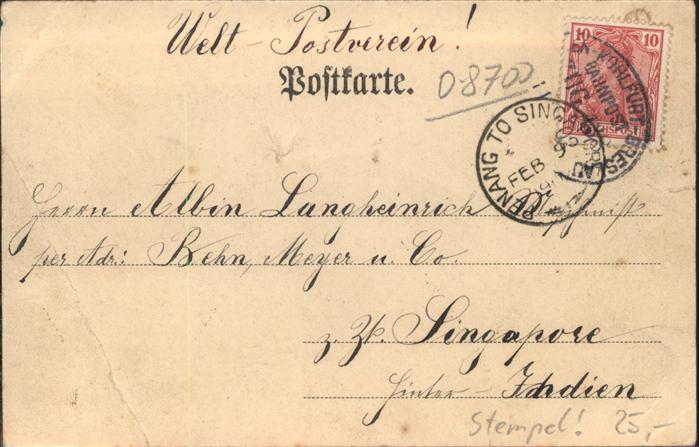 Welt-Postverein!
Postkarte.
08700
10 10
REICHSPOST
KOHLFURT BRESLAU
BAHNPOST
ZUG
PENANG TO SINGAPORE
FEB
Herrn Albin Langheinrich
per Adr: Behn, Meyer u. Co.
z. Zt. Singapore
Hinter-Indien
Stempel! 25,-